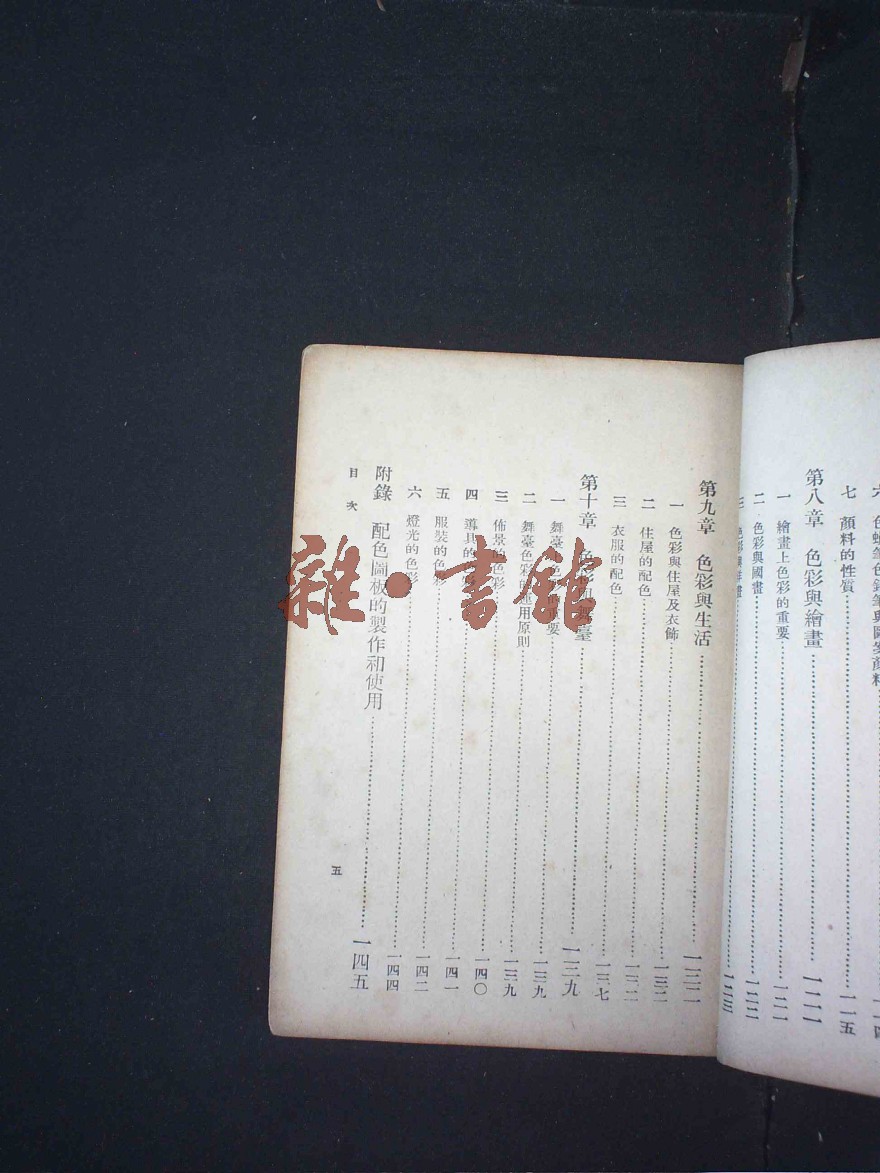 七 顏料的性質……一一五
第八章 色彩與繪畫……一二一
一 繪畫上色彩的重要……一二一
二 色彩與國畫……一二二
三 色彩與洋畫……一二三
第九章 色彩與生活……一三二
一 色彩與住屋及衣飾……一三二
二 住屋的配色……
三 衣服的配色……一三七
第十章 色彩與舞臺……一三九
一 舞臺上色彩的重要……一三九
二 舞臺色彩的運用原則……一三九
三 佈景的色彩……一四〇
四 導具的色彩……一四一
五 服裝的色彩……一四二
六 燈光的色彩……一四四
附錄 配色圖板的製作和使用……一四五
目次
五
雜·書館